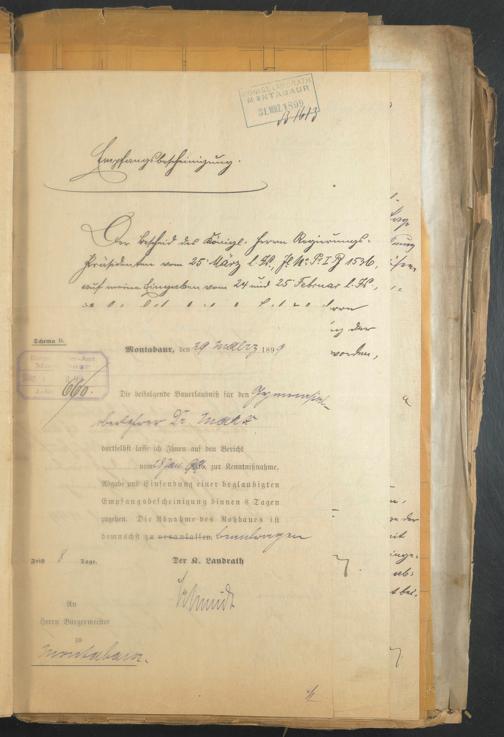 KÖNIGL. LANDRATH
MONTABAUR
31. MRZ. 1899
Empfangsbescheinigung.
Der Bescheid des Königl. Herrn Regierungs-
Präsidenten vom 25. März l. Js., J. No. Pr. I B 1536,
auf meine Eingaben vom 24 und 25 Februar l. Js.,
Schema b.
Montabaur, den 29 März 1899
660.
Die beifolgende Bauerlaubniß für den Gymnasial-
Dr.
dortselbst lasse ich Ihnen auf den Bericht
vom zur Kenntnißnahme,
Abgabe und Einsendung einer beglaubigten
Empfangsbescheinigung binnen 8 Tagen
zugehen. Die Abnahme des Rohbaues ist
demnächst zu veranlassen beantragen
Frist 8 Tage.
Der K. Landrath
Schmidt
An
Herrn Bürgermeister
zu
Montabaur.